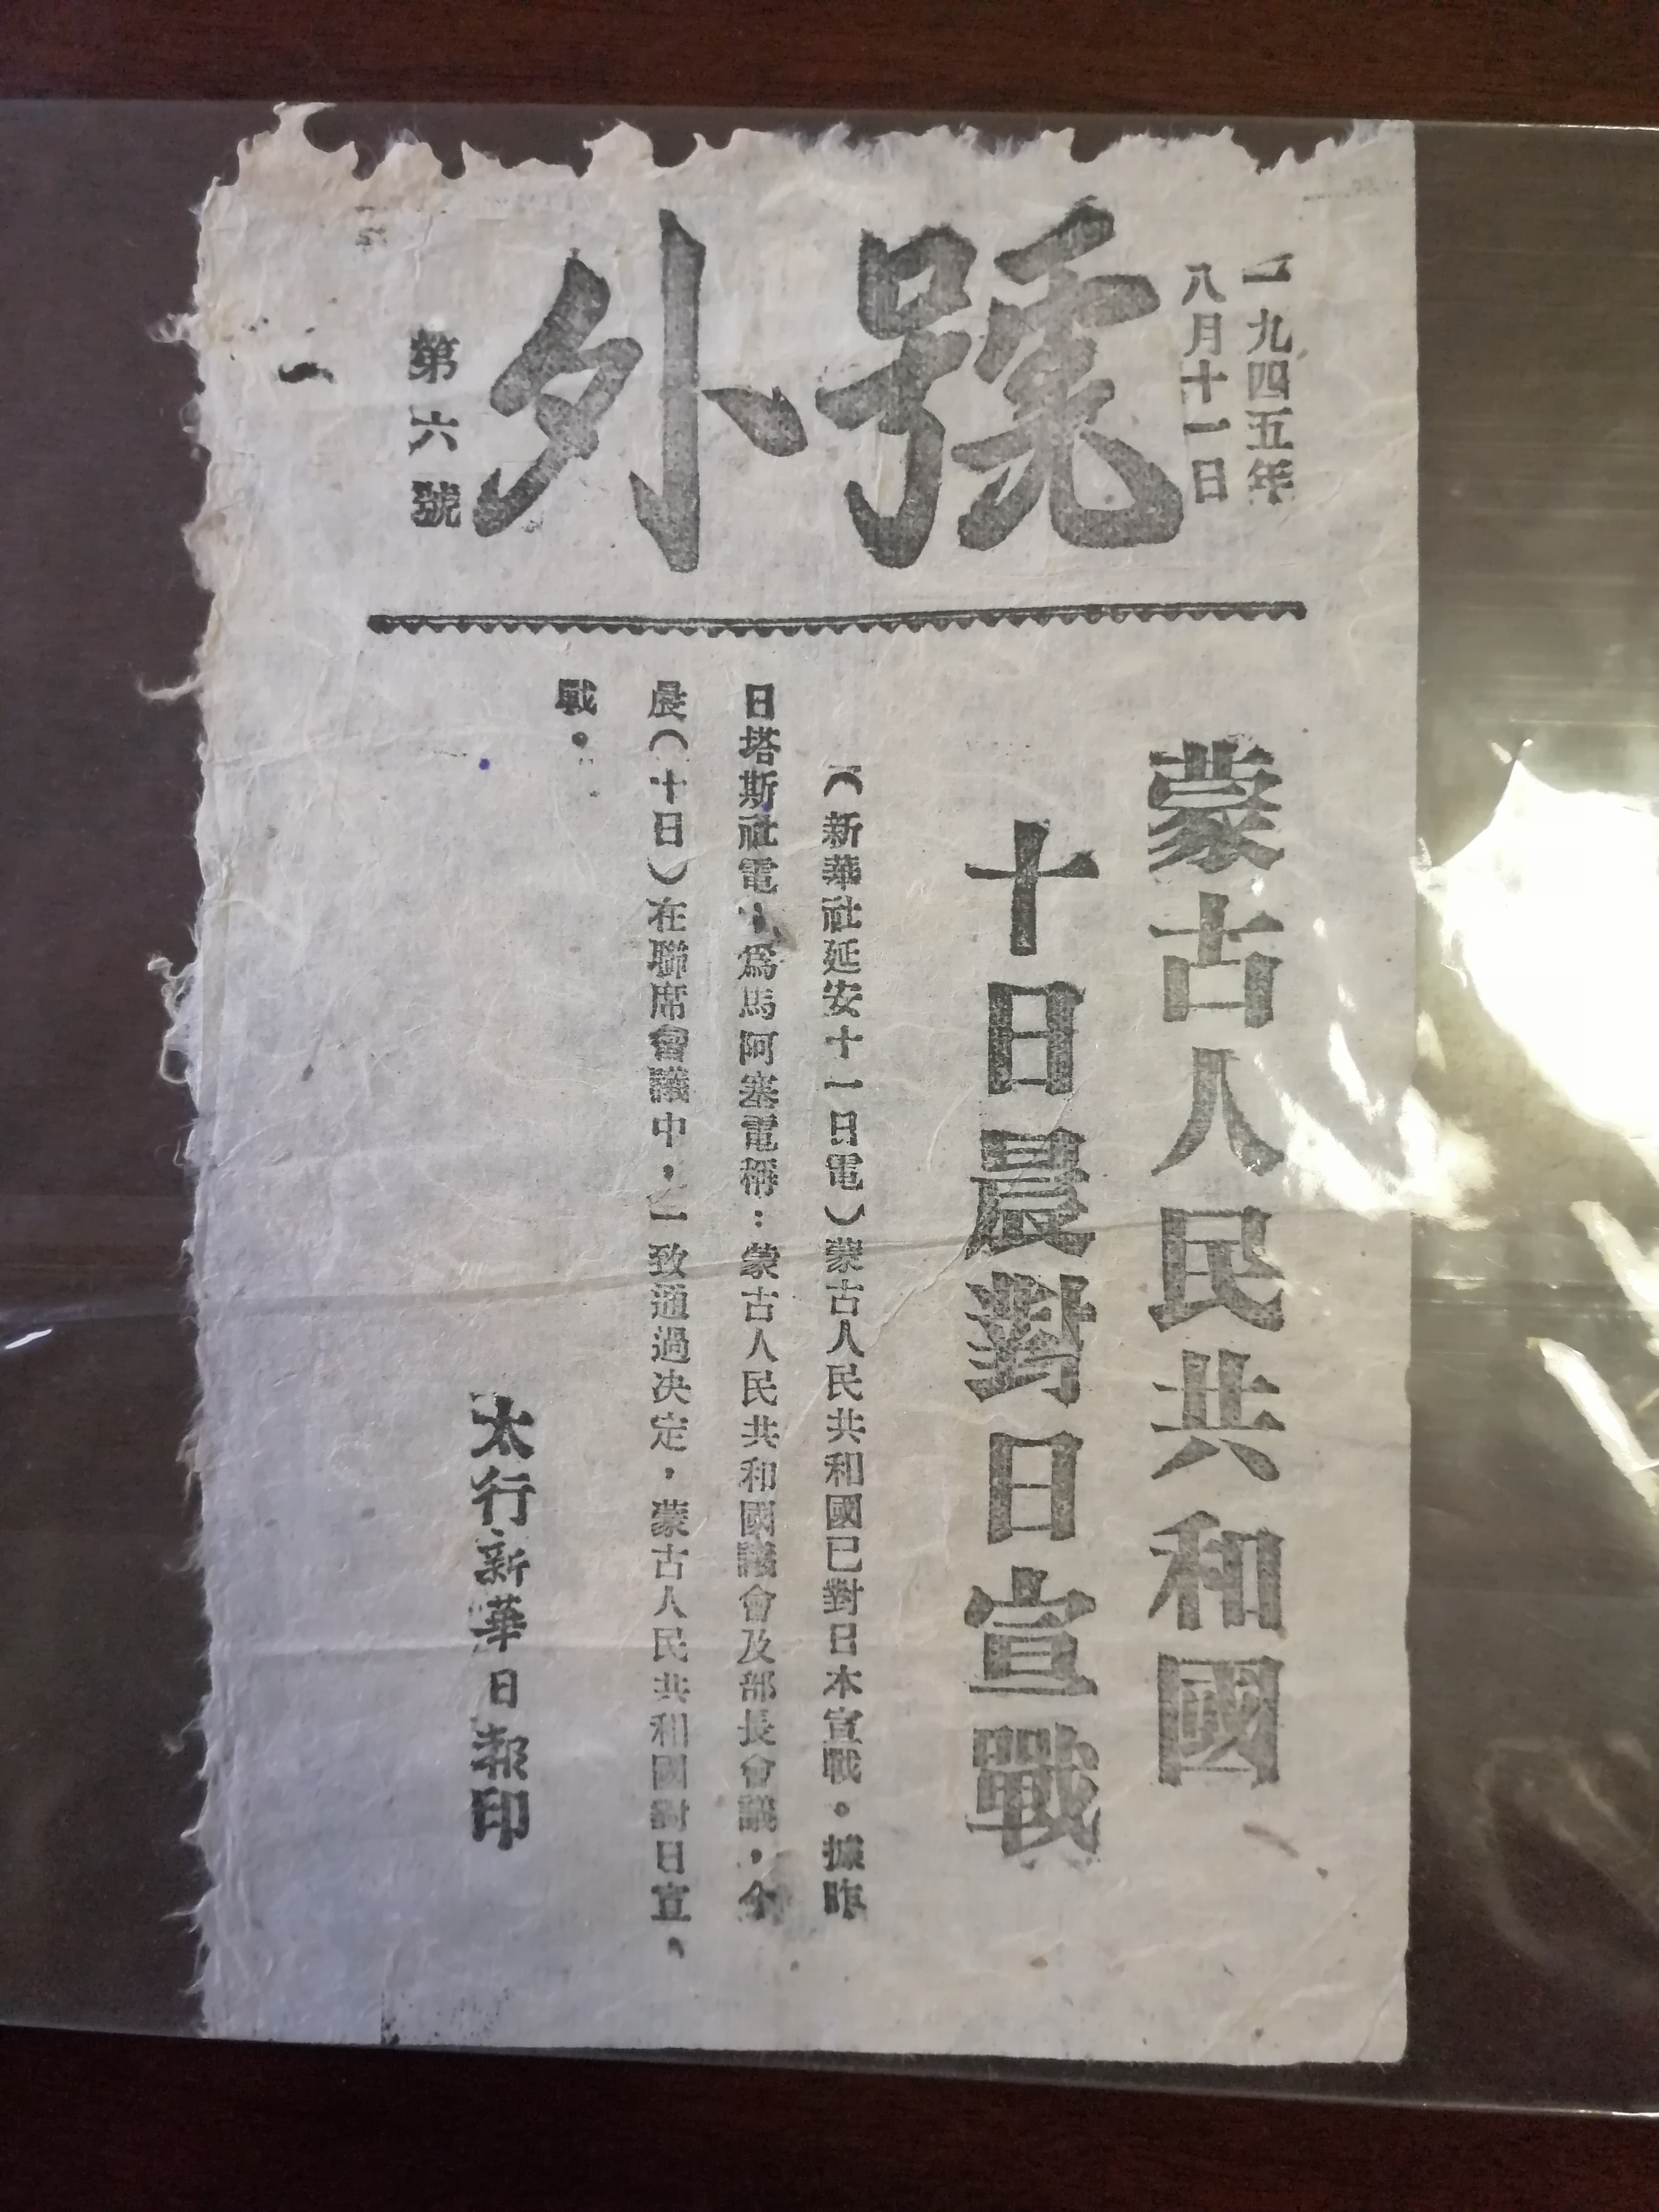 一九四五年
八月十一日
外號
第六號
蒙古人民共和國
十日晨對日宣戰
（新華社延安十一日電）蒙古人民共和國已對日本宣戰。據昨
日塔斯社電：烏馬阿塞電稱：蒙古人民共和國議會及部長會議，今
晨（十日）在聯席會議中，一致通過決定，蒙古人民共和國對日宣，
戰。
太行新華日報印